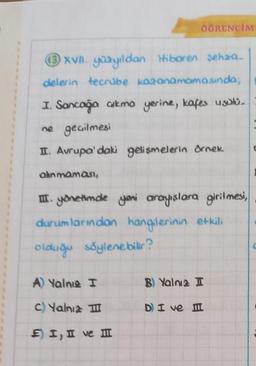 ÖĞRENCİM
13 XVII. yüzyıldan itibaren şehza-
delerin tecrübe kazanamamasında;
I. Sancağa çıkma yerine, kafes usulü-
ne geçilmesi
II. Avrupa'daki gelişmelerin örnek
alınmaması,
III. yönetimde yeni arayışlara girilmesi,
durumlarından hangilerinin etkili
olduğu söylenebilir?
A) Yalnız I
B) Yalnız II
C) Yalnız III
D) I ve III
E) I, II ve III